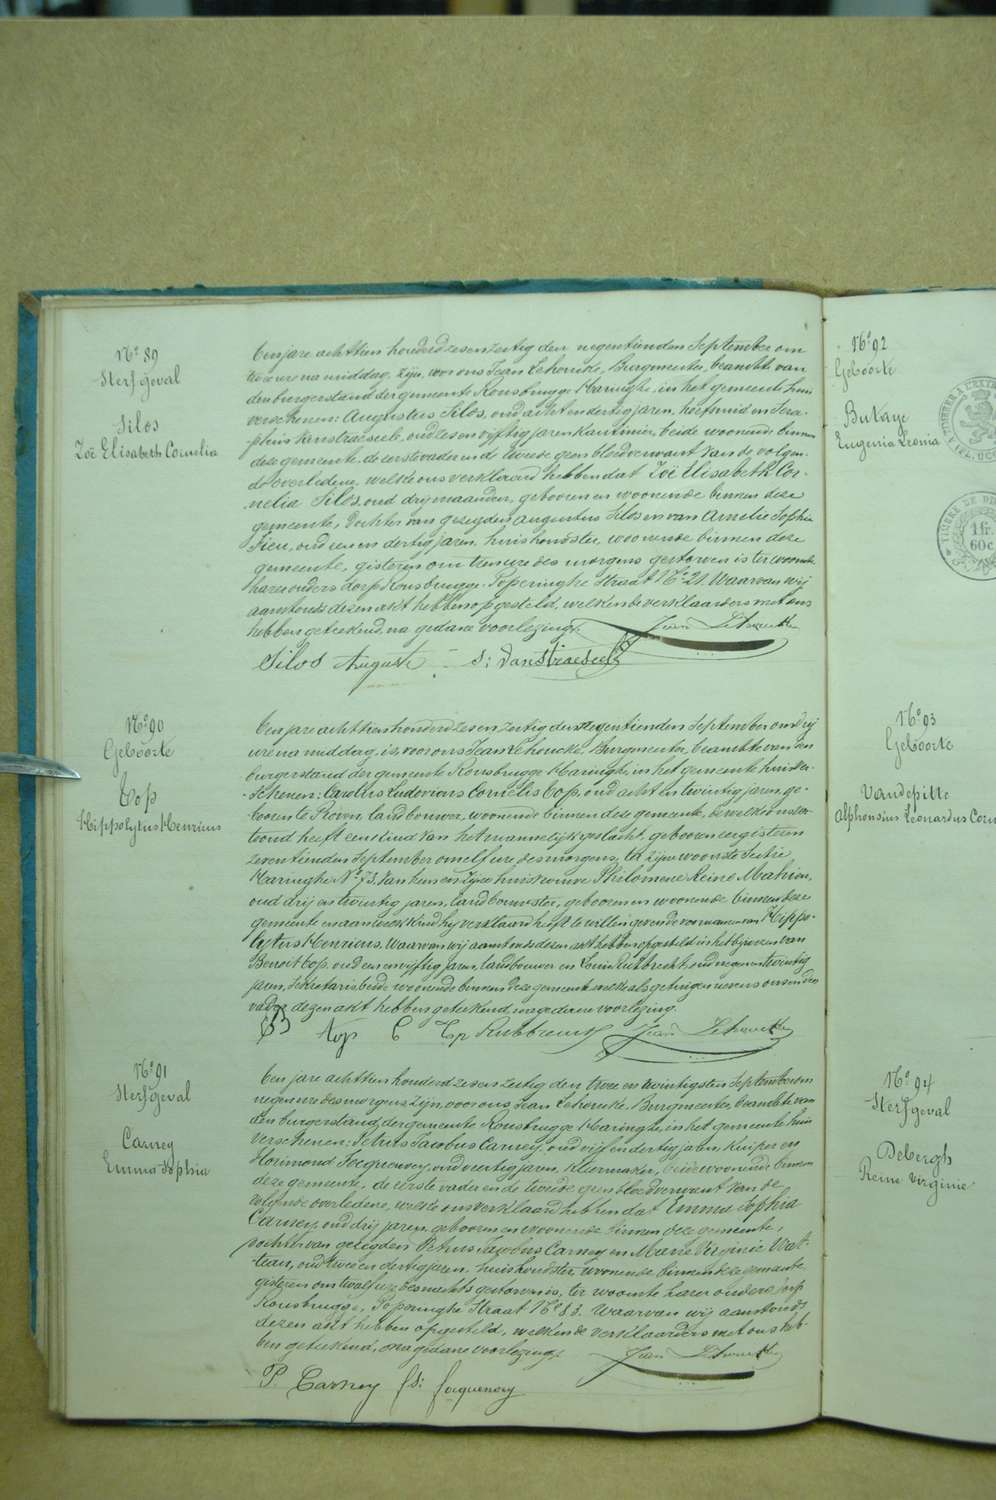 N° 89
Sterfgeval
Silos
Zoë Elisabeth Cornelia
Ten jare achttien honderd zesenzestig den negentienden September om
twee ure na middag, zijn, voor ons Jean Lehoucke, Burgmeester, beambte van
den burgerstand der gemeente Rousbrugge-Haringhe, in het gemeente huis
verschenen: Augustus Silos, oud acht en dertig jaren, en Sera-
phin oud zes en vyftig jaren kantinier, beide woonende binnen
deze gemeente, de eerste vader en de tweede geen bloedverwant van de volgen-
de overledene, welke ons verklaard hebben dat Zoë Elisabeth Cor-
nelia Silos, oud drij maanden, geboren en woonende binnen deze
gemeente, dochter van gezeyden Augustus Silos en van Amelie Sophie
oud een en dertig jaren, huishoudster, woonende binnen deze
gemeente, gisteren om tien ure des morgens gestorven is ter woonste
harer ouders dorp Rousbrugge, Poperinghe Straat N° 21. Waarvan wij
aanstonds dezen akt hebben opgesteld, welken de verklaarders met ons
hebben geteekend, na gedane voorlezing.
Jean Lehoucke
Silos August S: Vanstraeseele
N° 90
Geboorte
Top
Hippolytus Henricus
Ten jare achttien honderd zesenzestig den negentienden September om drij
ure na middag, is, voor ons Jean Lehoucke, Burgmeester, beambte van den
burgerstand der gemeente Rousbrugge-Haringhe, in het gemeente huis ver-
schenen: Carolus Ludovicus Cornelis Top, oud acht en twintig jaren, ge-
boren te Proven, landbouwer, woonende binnen deze gemeente, dewelke ons ver-
toond heeft een kind van het mannelijk geslacht, geboren eergisteren
zeventienden September om elf ure des morgens, ter zijner woonste Sectie
Haringhe N° 73, van hem en zijne huisvrouwe Philomene Reine Mahieu,
oud drij en twintig jaren, landbouwster, geboren en woonende binnen deze
gemeente en aan welk kind hij verklaard heeft te willen geven de voornamen van Hippo-
lytus Henricus. Waarvan wij aanstonds dezen akt hebben opgesteld in het bijwezen van
Benoit Top, oud een en vijftig jaren, landbouwer en Louis Rubbrecht, oud negen en twintig
jaren, sekretaris beide woonende binnen deze gemeente welke als getuigen nevens ons en den
vader dezen akt hebben geteekend, na gedane voorlezing.
Top C Top Rubbrecht Jean Lehoucke
N° 91
Sterfgeval
Carney
Emma Sophia
Ten jare achttien honderd zesenzestig den twee en twintigsten September om
negen ure des morgens zijn, voor ons Jean Lehoucke, Burgmeester, beambte van
den burgerstand der gemeente Rousbrugge-Haringhe, in het gemeente huis
verschenen: Petrus Jacobus Carney, oud vijf en dertig jaren, kuiper en
Florimond Jocquenoey, oud veertig jaren, kleermaker, beide woonende binnen
deze gemeente, de eerste vader en de tweede geen bloedverwant van de
volgende overledene, welke ons verklaard hebben dat Emma Sophia
Carney, oud drij jaren, geboren en woonende binnen deze gemeente,
dochter van gezegden Petrus Jacobus Carney en Marie Virginie Wat-
teau, oud twee en dertig jaren, huishoudster, woonende binnen deze gemeente
gisteren om twaalf ure des nachts gestorven is, ter woonste harer ouders dorp
Rousbrugge, Poperinghe Straat N° 83. Waarvan wij aanstonds
dezen akt hebben opgesteld, welken de verklaarders met ons heb-
ben geteekend, na gedane voorlezing.
Jean Lehoucke
P. Carney fs: Jocquenoey
N° 92
Geboorte
Butaye
Eugenia Leonia
N° 93
Geboorte
Vandepitte
Alphonsius Leonardus Corn
N° 94
Sterfgeval
Debergh
Reine Virginie
TIMBRE DE DI
1 fr.
60c